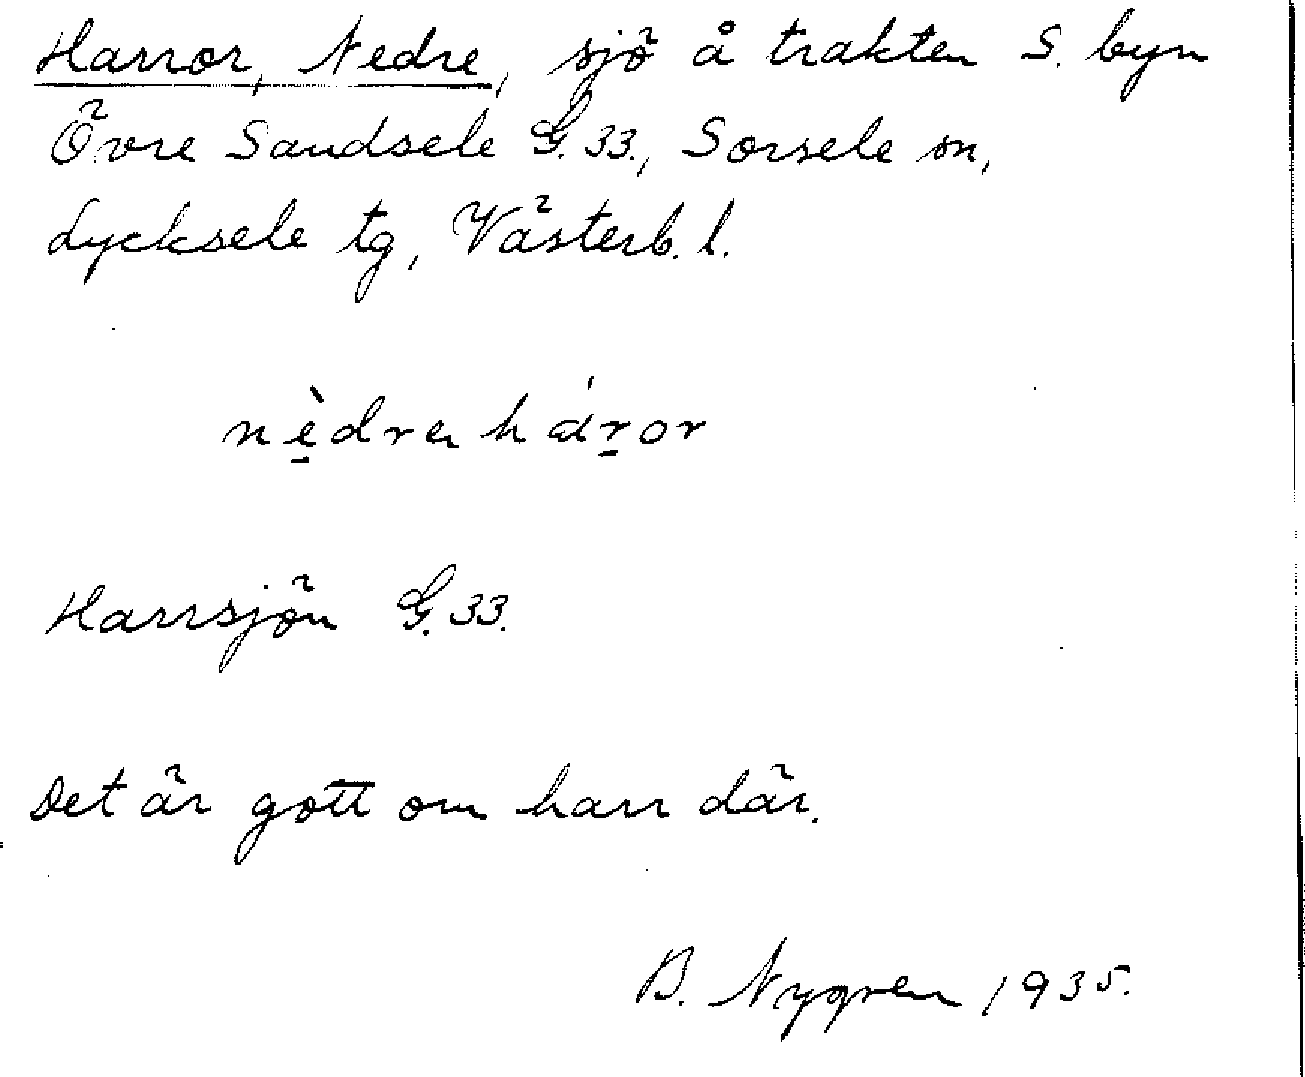 Harror, Nedre, sjö å trakten S. byn
Övre Sandsele G. 33., Sorsele sn,
Lycksele tg, Västerb. l.
nèdrⱥ háror
Harrsjön G. 33.
Det är gott om harr där.
B. Nygren 1935.